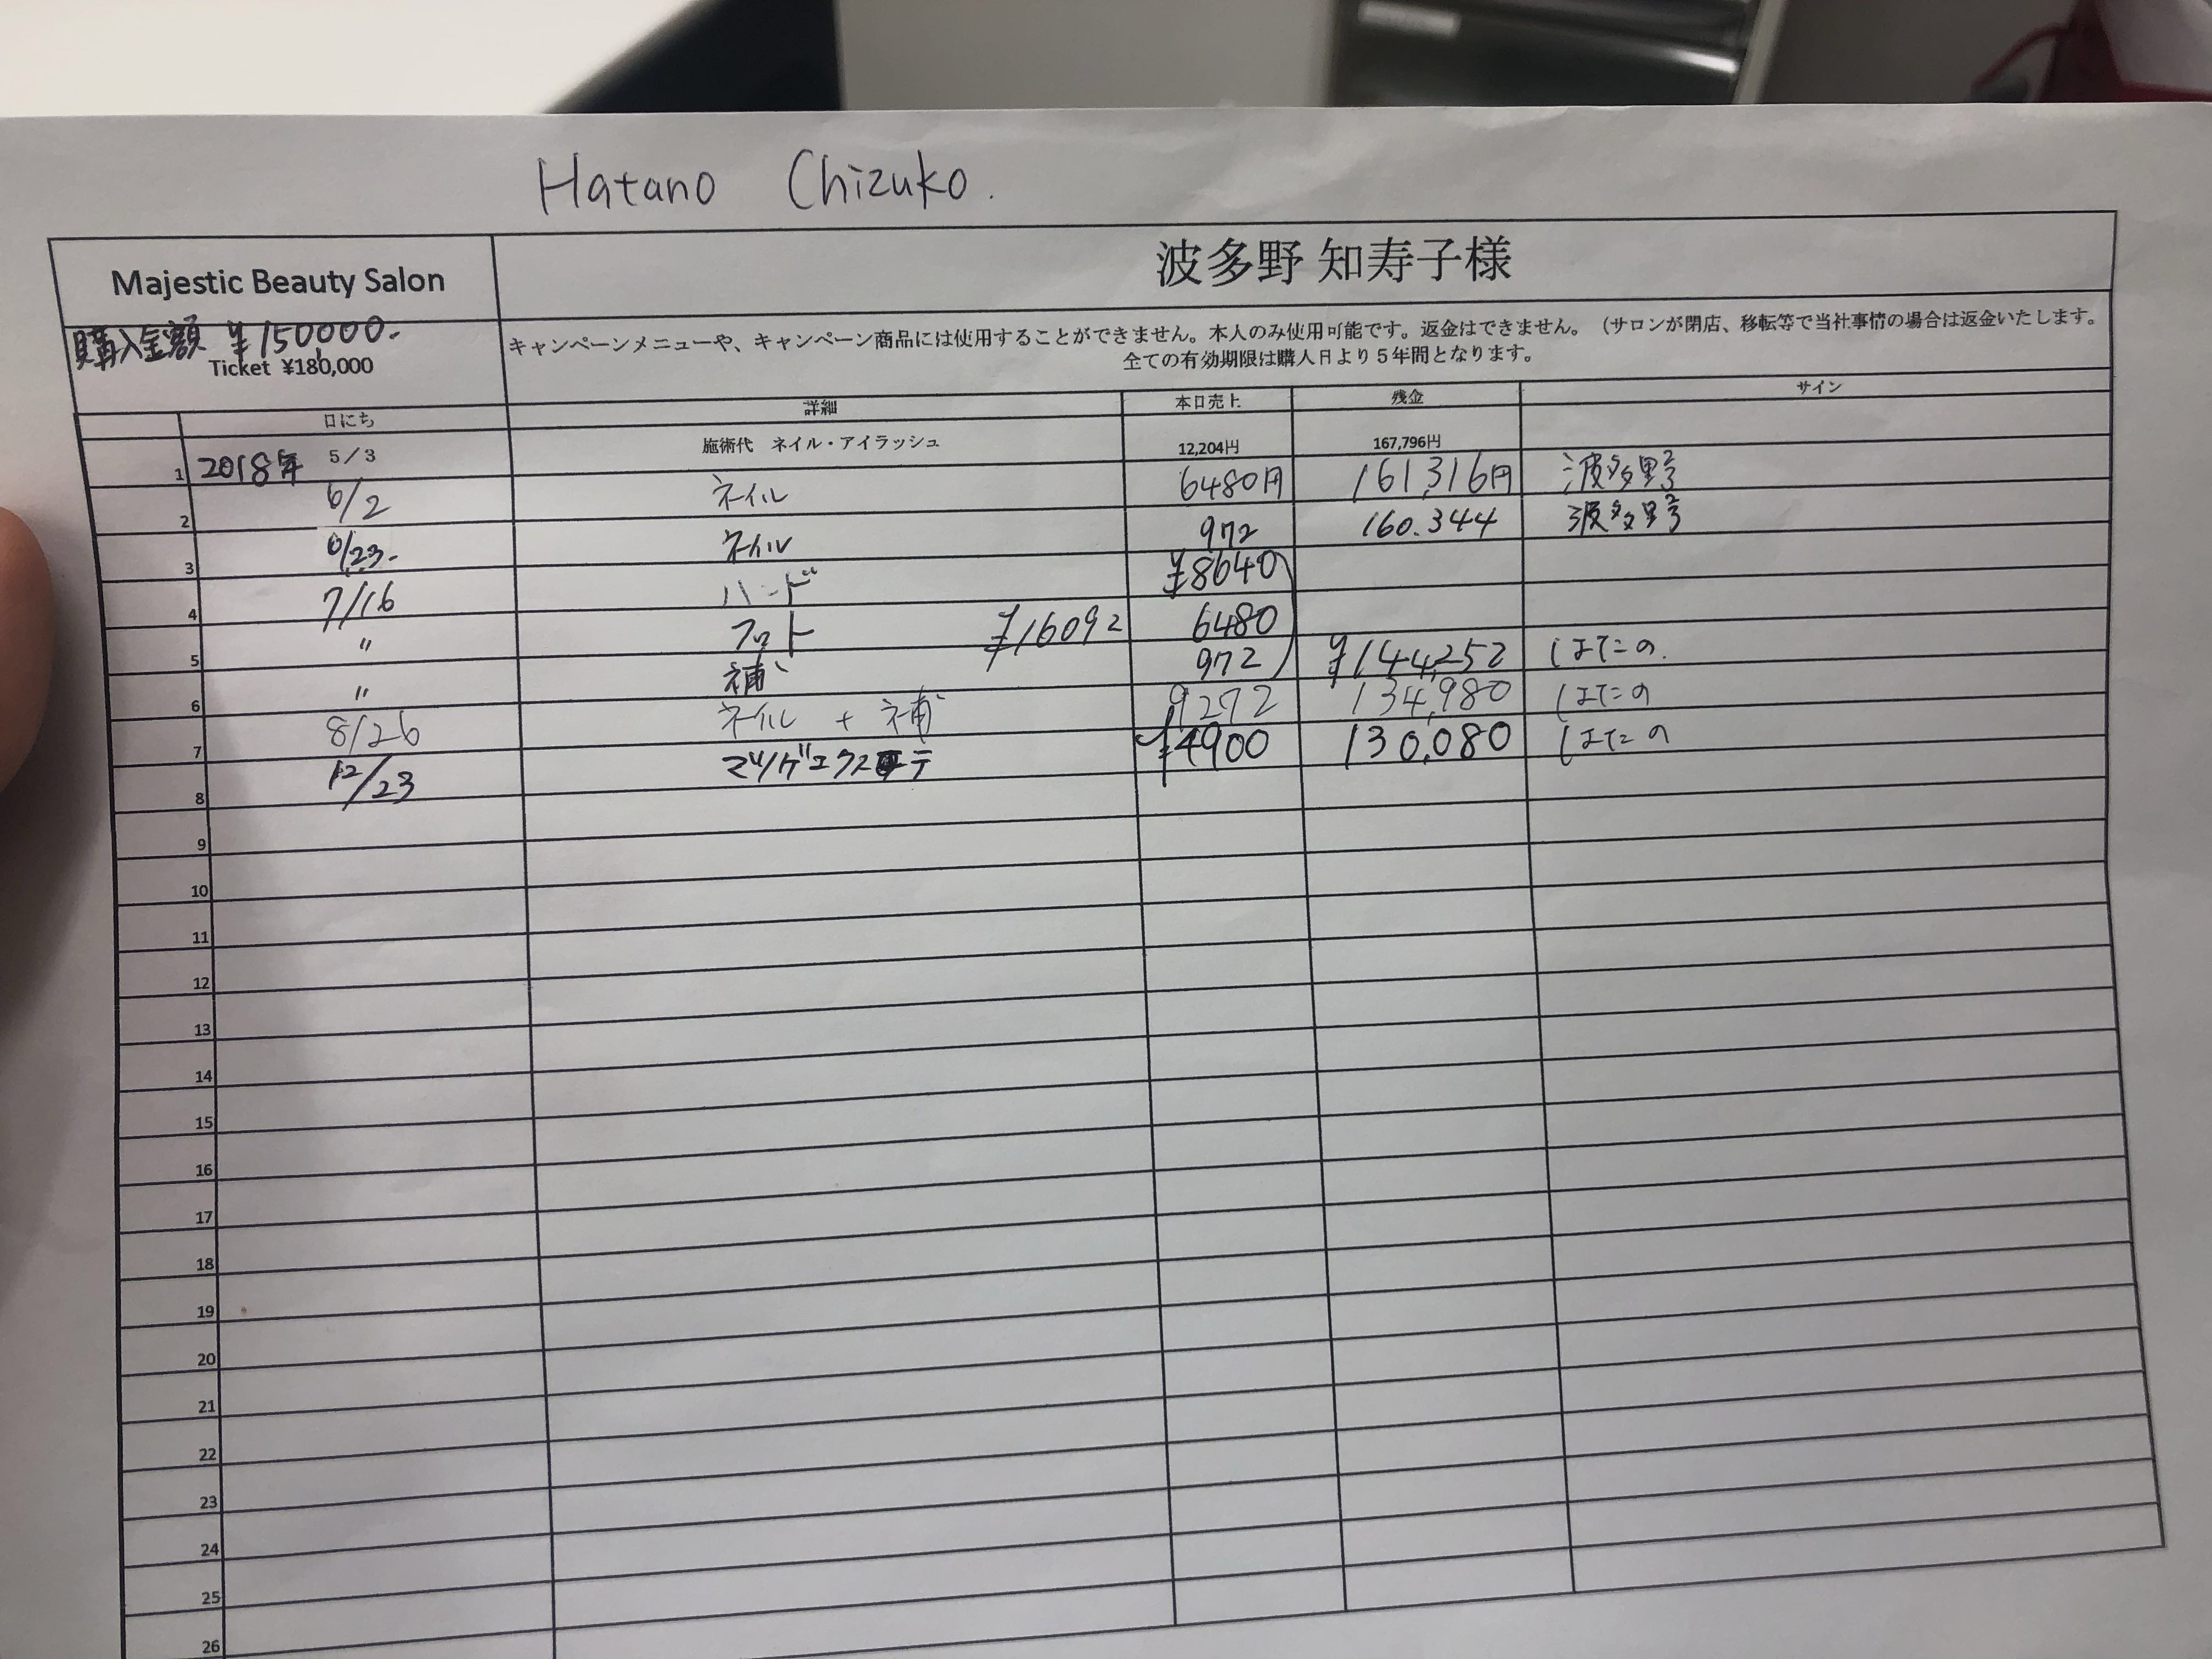 Hatano Chizuko.
Majestic Beauty Salon
波多野 知寿子様
購入金額 ¥150000-
Ticket ¥180,000
キャンペーンメニューや、キャンペーン商品には使用することができません。本人のみ使用可能です。返金はできません。（サロンが閉店、移転等で当社事情の場合は返金いたします。
全ての有効期限は購入日より５年間となります。
日にち 詳細 本日売上 残金 サイン
1 2018年 5/3 施術代 ネイル・アイラッシュ 12,204円 167,796円
2 6/2 ネイル 6480円 161,316円 波多野
3 6/23- ネイル 972 160.344 波多野
4 7/16 ハンド ¥8640
5 〃 フット ¥16092 6480
6 〃 補 972 ¥144,252 はたの.
7 8/26 ネイル + 補 9272 134,980 はたの
8 12/23 マツゲエクステ ¥4900 130,080 はたの
9
10
11
12
13
14
15
16
17
18
19
20
21
22
23
24
25
26